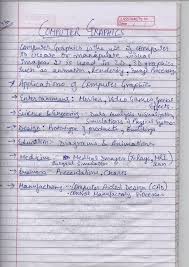 COMPUTER GRAPHICS
Computer Graphics is the use of computer
to create or manipulate visual
Images. It is used in
such as animation, Rendering, Image Processing
→ Applications of Computer Graphics
→ Entertainment: Movies, Video Games, Special
Effects
→ Science & Engineering: Data Analysis, Visualization,
Simulations of Physical Systems
→ Design: Prototype of products, Buildings
→ Education: Diagrams & Animations
→ Medicine: Medical Images (X-Rays, MRI
Surgical Simulation
→ Business: Presentation, Charts
→ Manufacturing: Computer Aided Design (CAD)
Manufacturing Processes